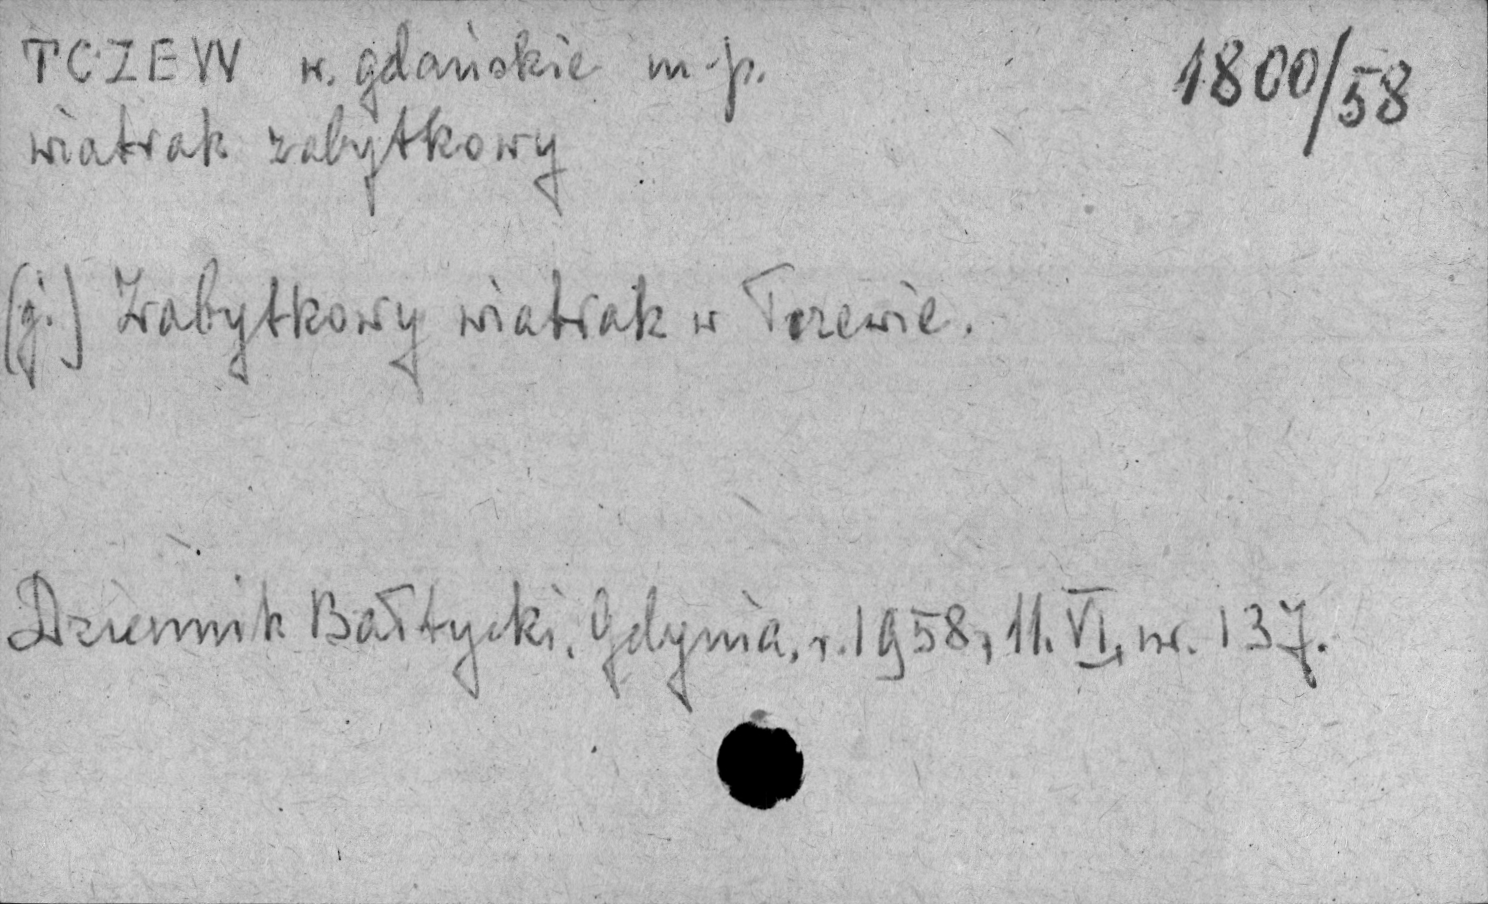 TCZEW w. gdańskie m-p. 1800/58
wiatrak zabytkowy
(g.) Zabytkowy wiatrak w Tczewie.
Dziennik Bałtycki, Gdynia, r. 1958, 11. VI, nr. 137.